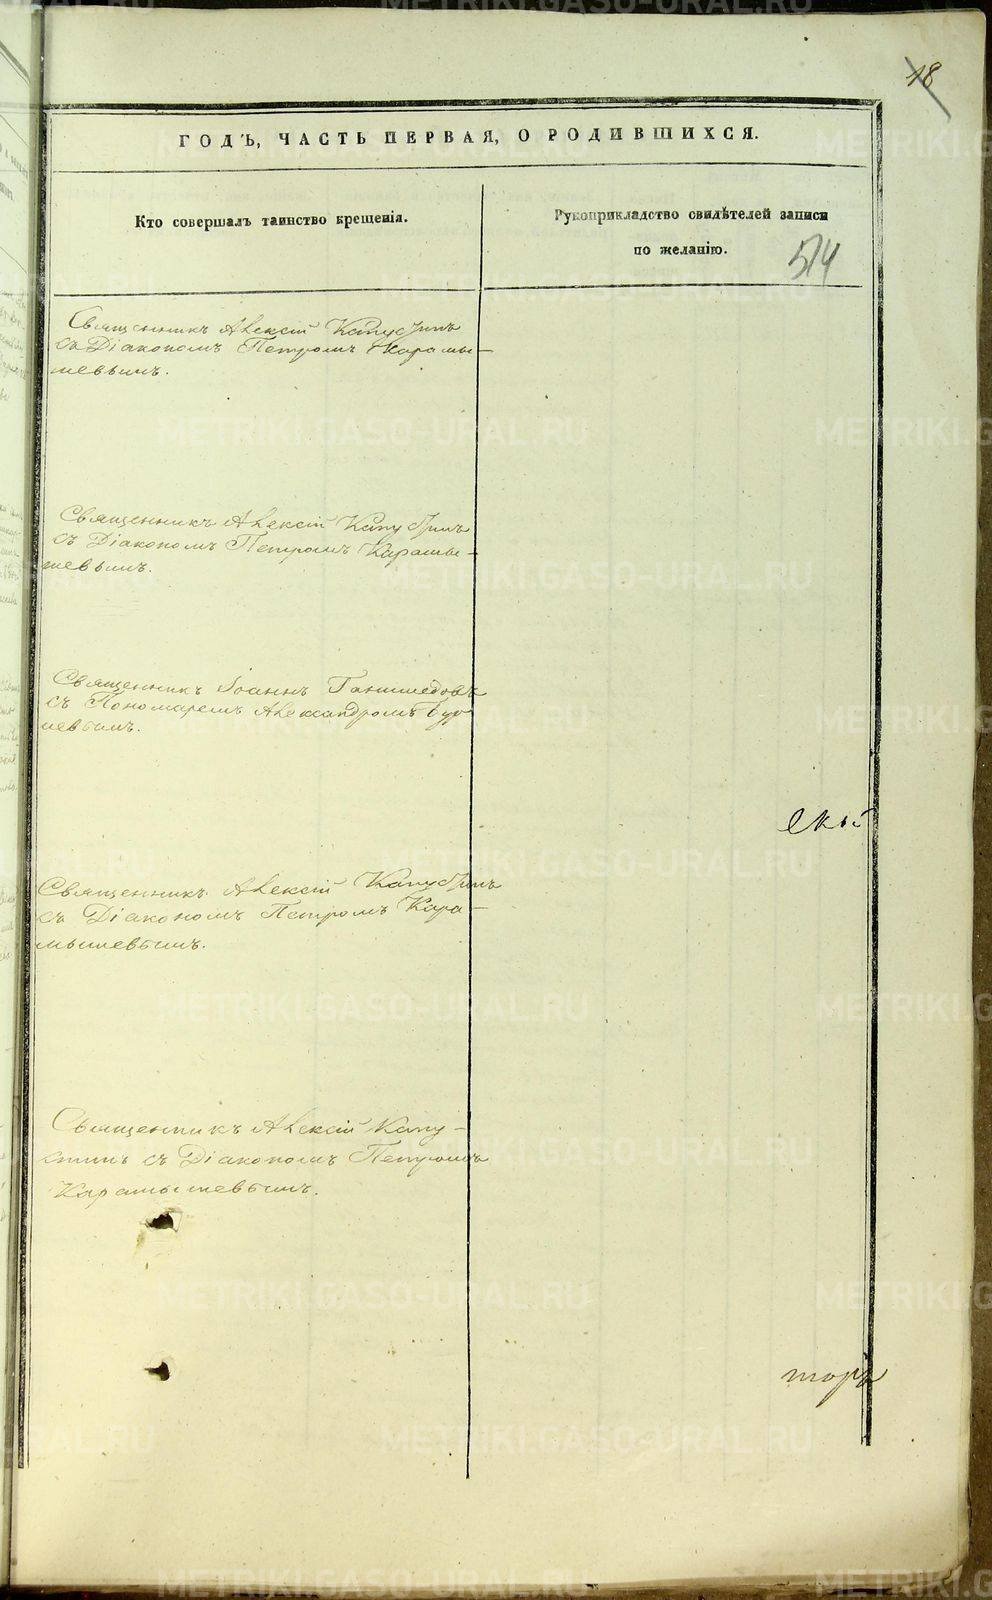 18
ГОДЪ, ЧАСТЬ ПЕРВАЯ, О РОДИВШИХСЯ.
Кто совершалъ таинство крещенія.
Рукоприкладство свидѣтелей записи
по желанію.
514
Священникъ Алексій Капустинъ
съ Діакономъ Петромъ Карамы-
шевымъ.
Священникъ Алексій Капустинъ
съ Діакономъ Петромъ Карамы-
шевымъ.
Священникъ Іоаннъ
съ Пономаремъ Александромъ
Священникъ Алексій Капустинъ
съ Діакономъ Петромъ Кара-
мышевымъ.
Священникъ Алексій Капу-
стинъ съ Діакономъ Петромъ
Карамышевымъ.
торъ
METRIKI.GASO-URAL.RU